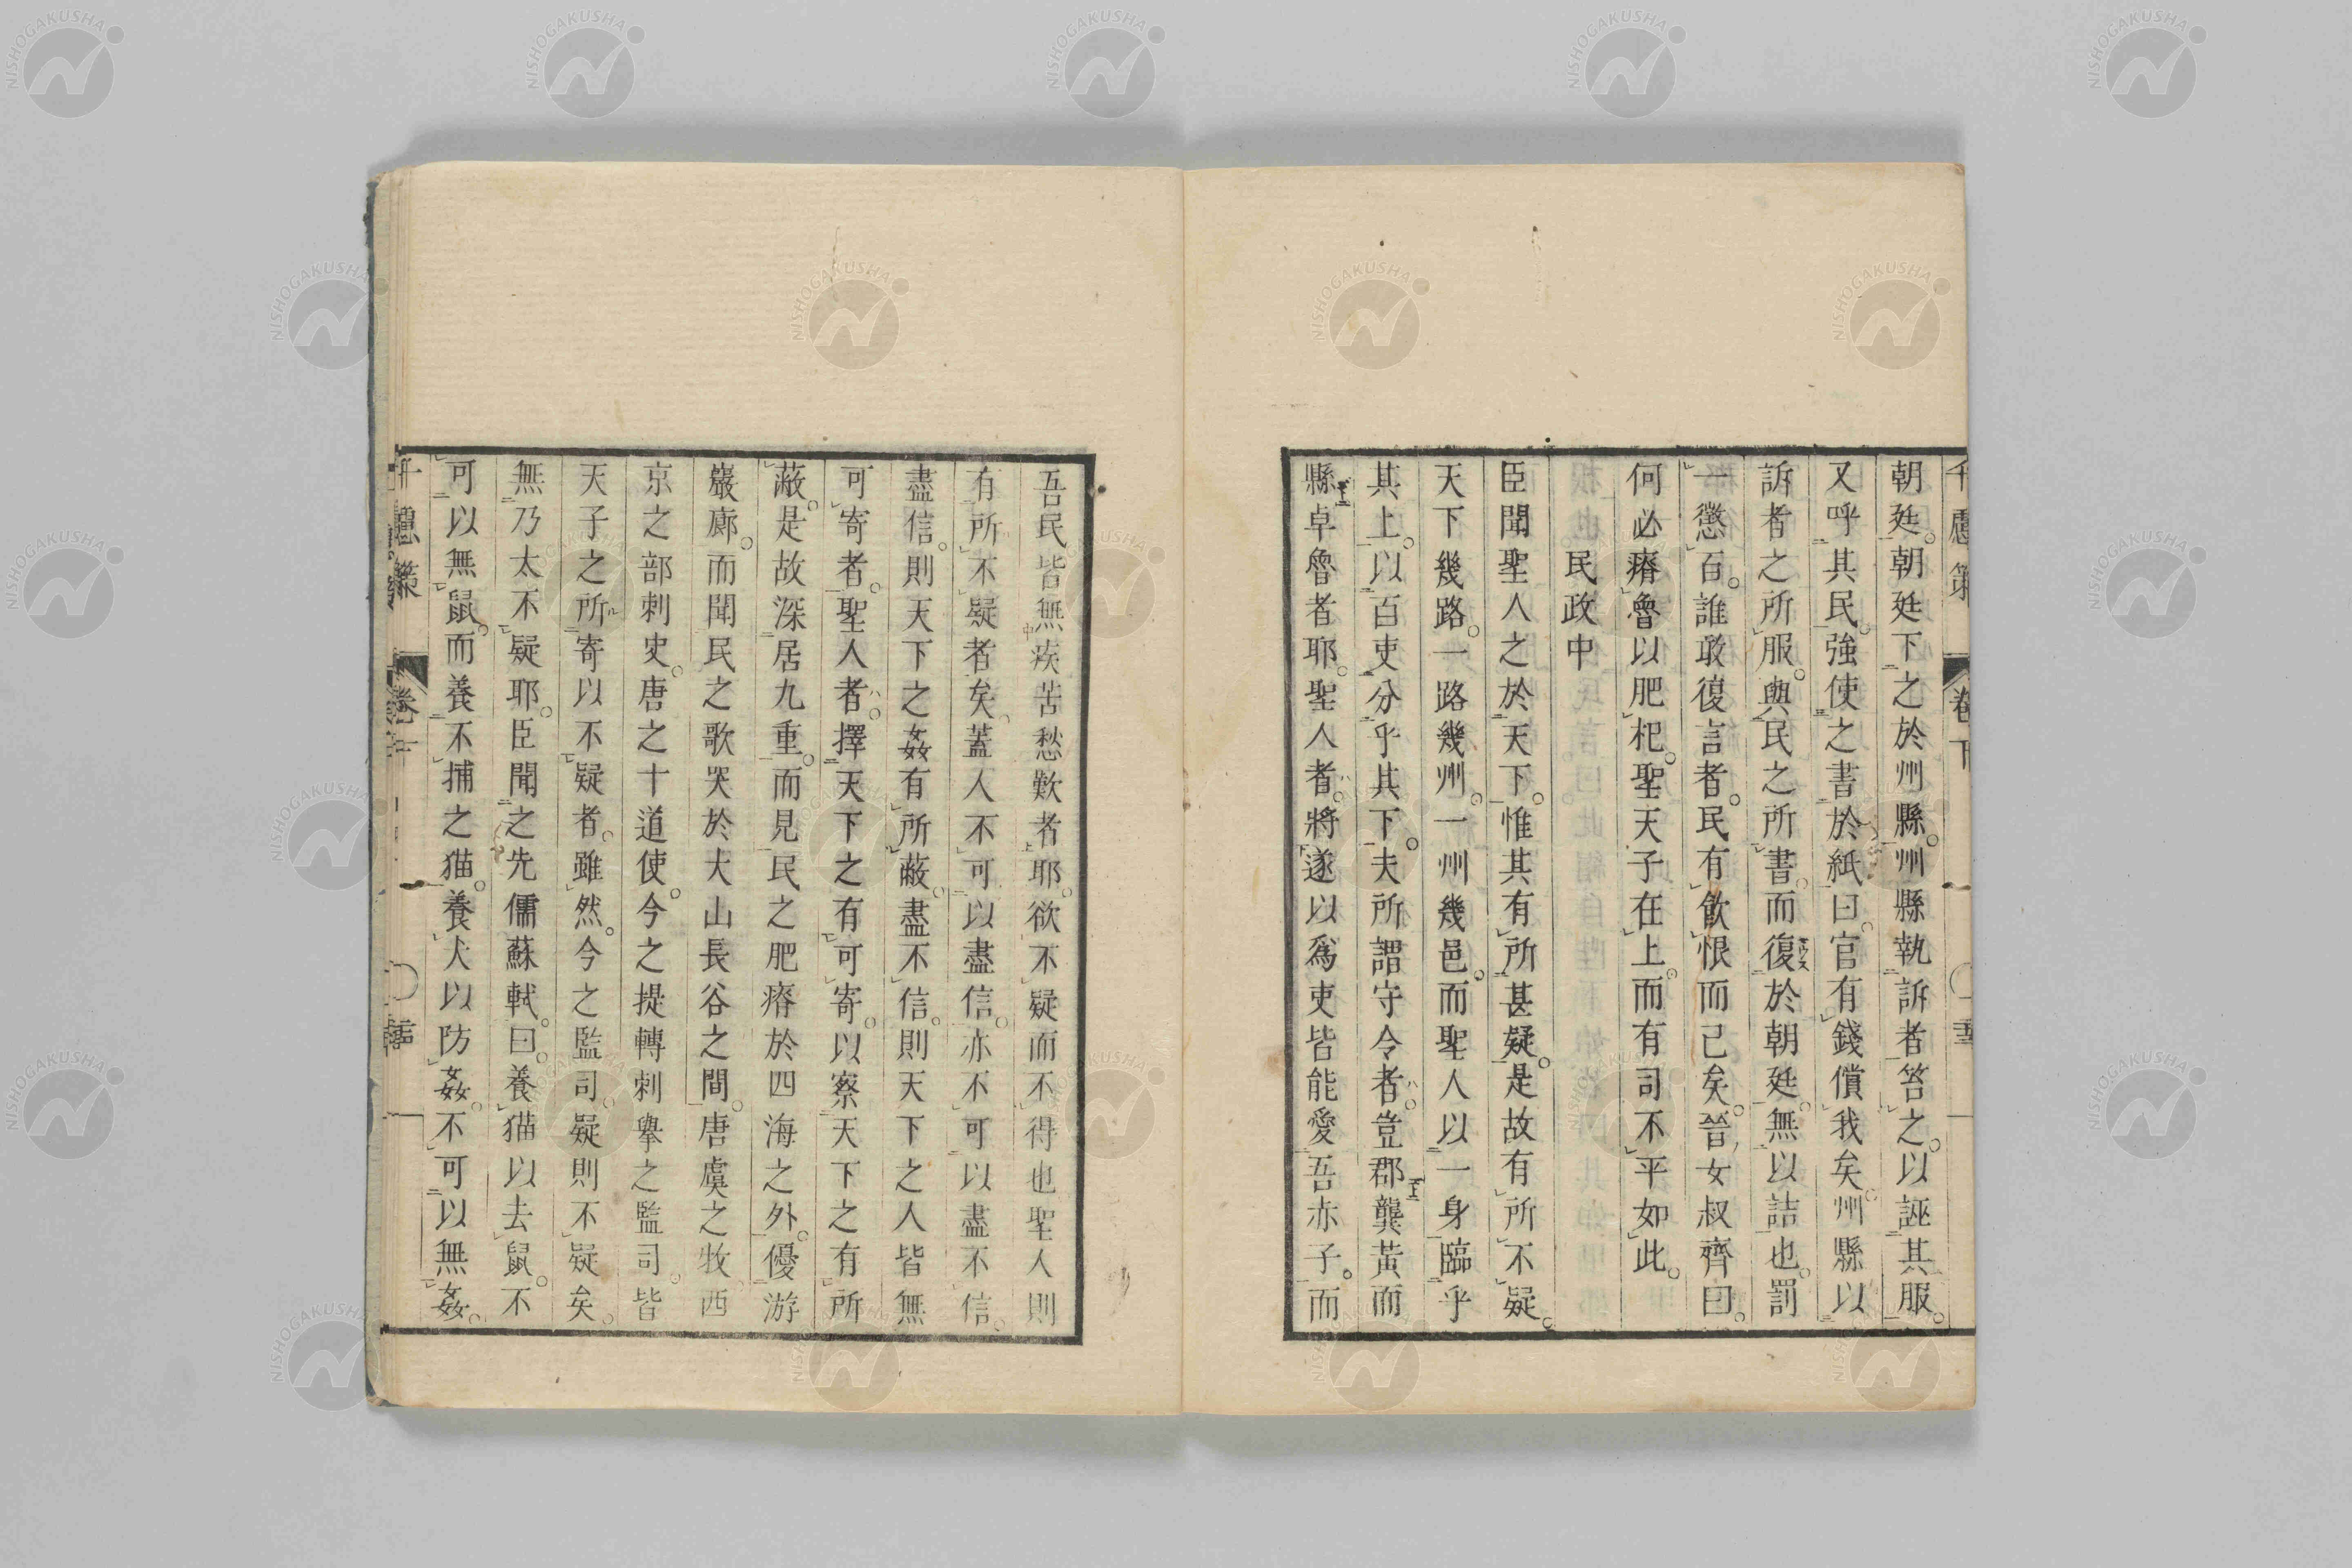 千慮策 卷下
朝廷。朝廷下之於州縣。州縣執訴者笞之。以誣其服。
又呼其民。強使之書於紙曰。官有錢償我矣。州縣以
訴者之所服。與民之所書。而復於朝廷。無以詰也。罰
一懲百。誰敢復言者。民有飲恨而已矣。晉女叔齊曰。
何必瘠魯以肥杞。聖天子在上。而有司不平如此。
民政中
臣聞聖人之於天下。惟其有所甚疑。是故有所不疑。
天下幾路。一路幾州。一州幾邑。而聖人以一身臨乎
其上。以百吏分乎其下。夫所謂守令者。豈郡龔黃而
縣卓魯者耶。聖人者。將遂以爲吏皆能愛吾赤子。而
吾民皆無疾苦愁歎者耶。欲不疑而不得也聖人則
有所不疑者矣。蓋人不可以盡信。亦不可以盡不信。
盡信。則天下之姦有所蔽。盡不信。則天下之人皆無
可寄者。聖人者。擇天下之有可寄。以察天下之有所
蔽。是故深居九重。而見民之肥瘠於四海之外。優游
巖廊。而聞民之歌哭於大山長谷之間。唐虞之牧西
京之部刺史。唐之十道使。今之提轉刺舉之監司。皆
天子之所寄以不疑者。雖然。今之監司。疑則不疑矣。
無乃太不疑耶。臣聞之先儒蘇軾。曰。養猫以去鼠。不
可以無鼠。而養不捕之猫。養犬以防姦。不可以無姦。
千慮策 卷下
NISHOGAKUSHA